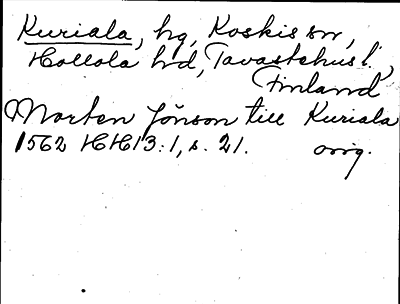 Kuriala, hg, Koskis sn,
Hollola hd, Tavastehus l.,
Finland
Morten Jönson till Kuriala
1562 HH13:1, s. 21. orig.